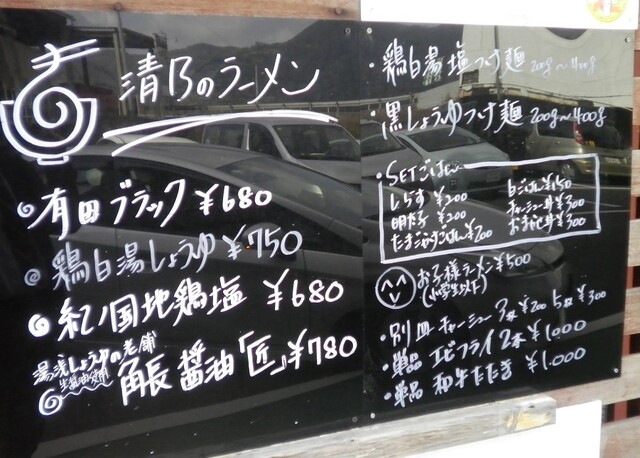 清乃のラーメン
有田ブラック ¥680
鶏白湯しょうゆ ¥750
紀ノ国地鶏塩 ¥680
湯浅しょうゆの老舗
生醤油使用
角長 醤油「匠」¥780
・鶏白湯塩つけ麺 200g〜400g
・黒しょうゆつけ麺 200g〜400g
・SETごはん
しらす ¥200
明太子 ¥200
たまごかけごはん ¥200
白ごはん ¥150
チャーシュー丼 ¥300
おまかせ丼 ¥300
お子様ラーメン ¥500
(小学生以下)
・別皿チャーシュー 3枚 ¥200 5枚 ¥300
・単品 エビフライ 2本 ¥1,000
・単品 和牛たたき ¥1.000